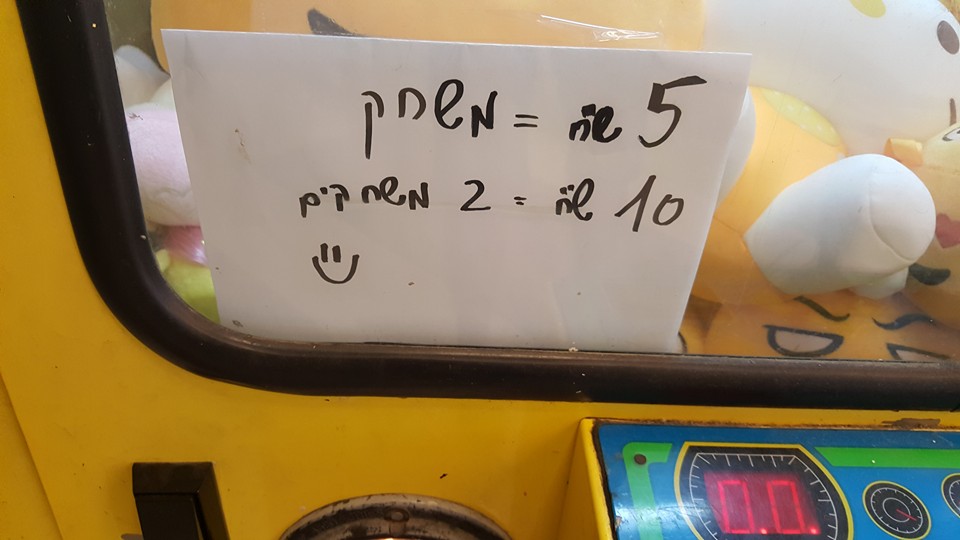 5 ש"ח = משחק
10 ש"ח = 2 משחקים
00